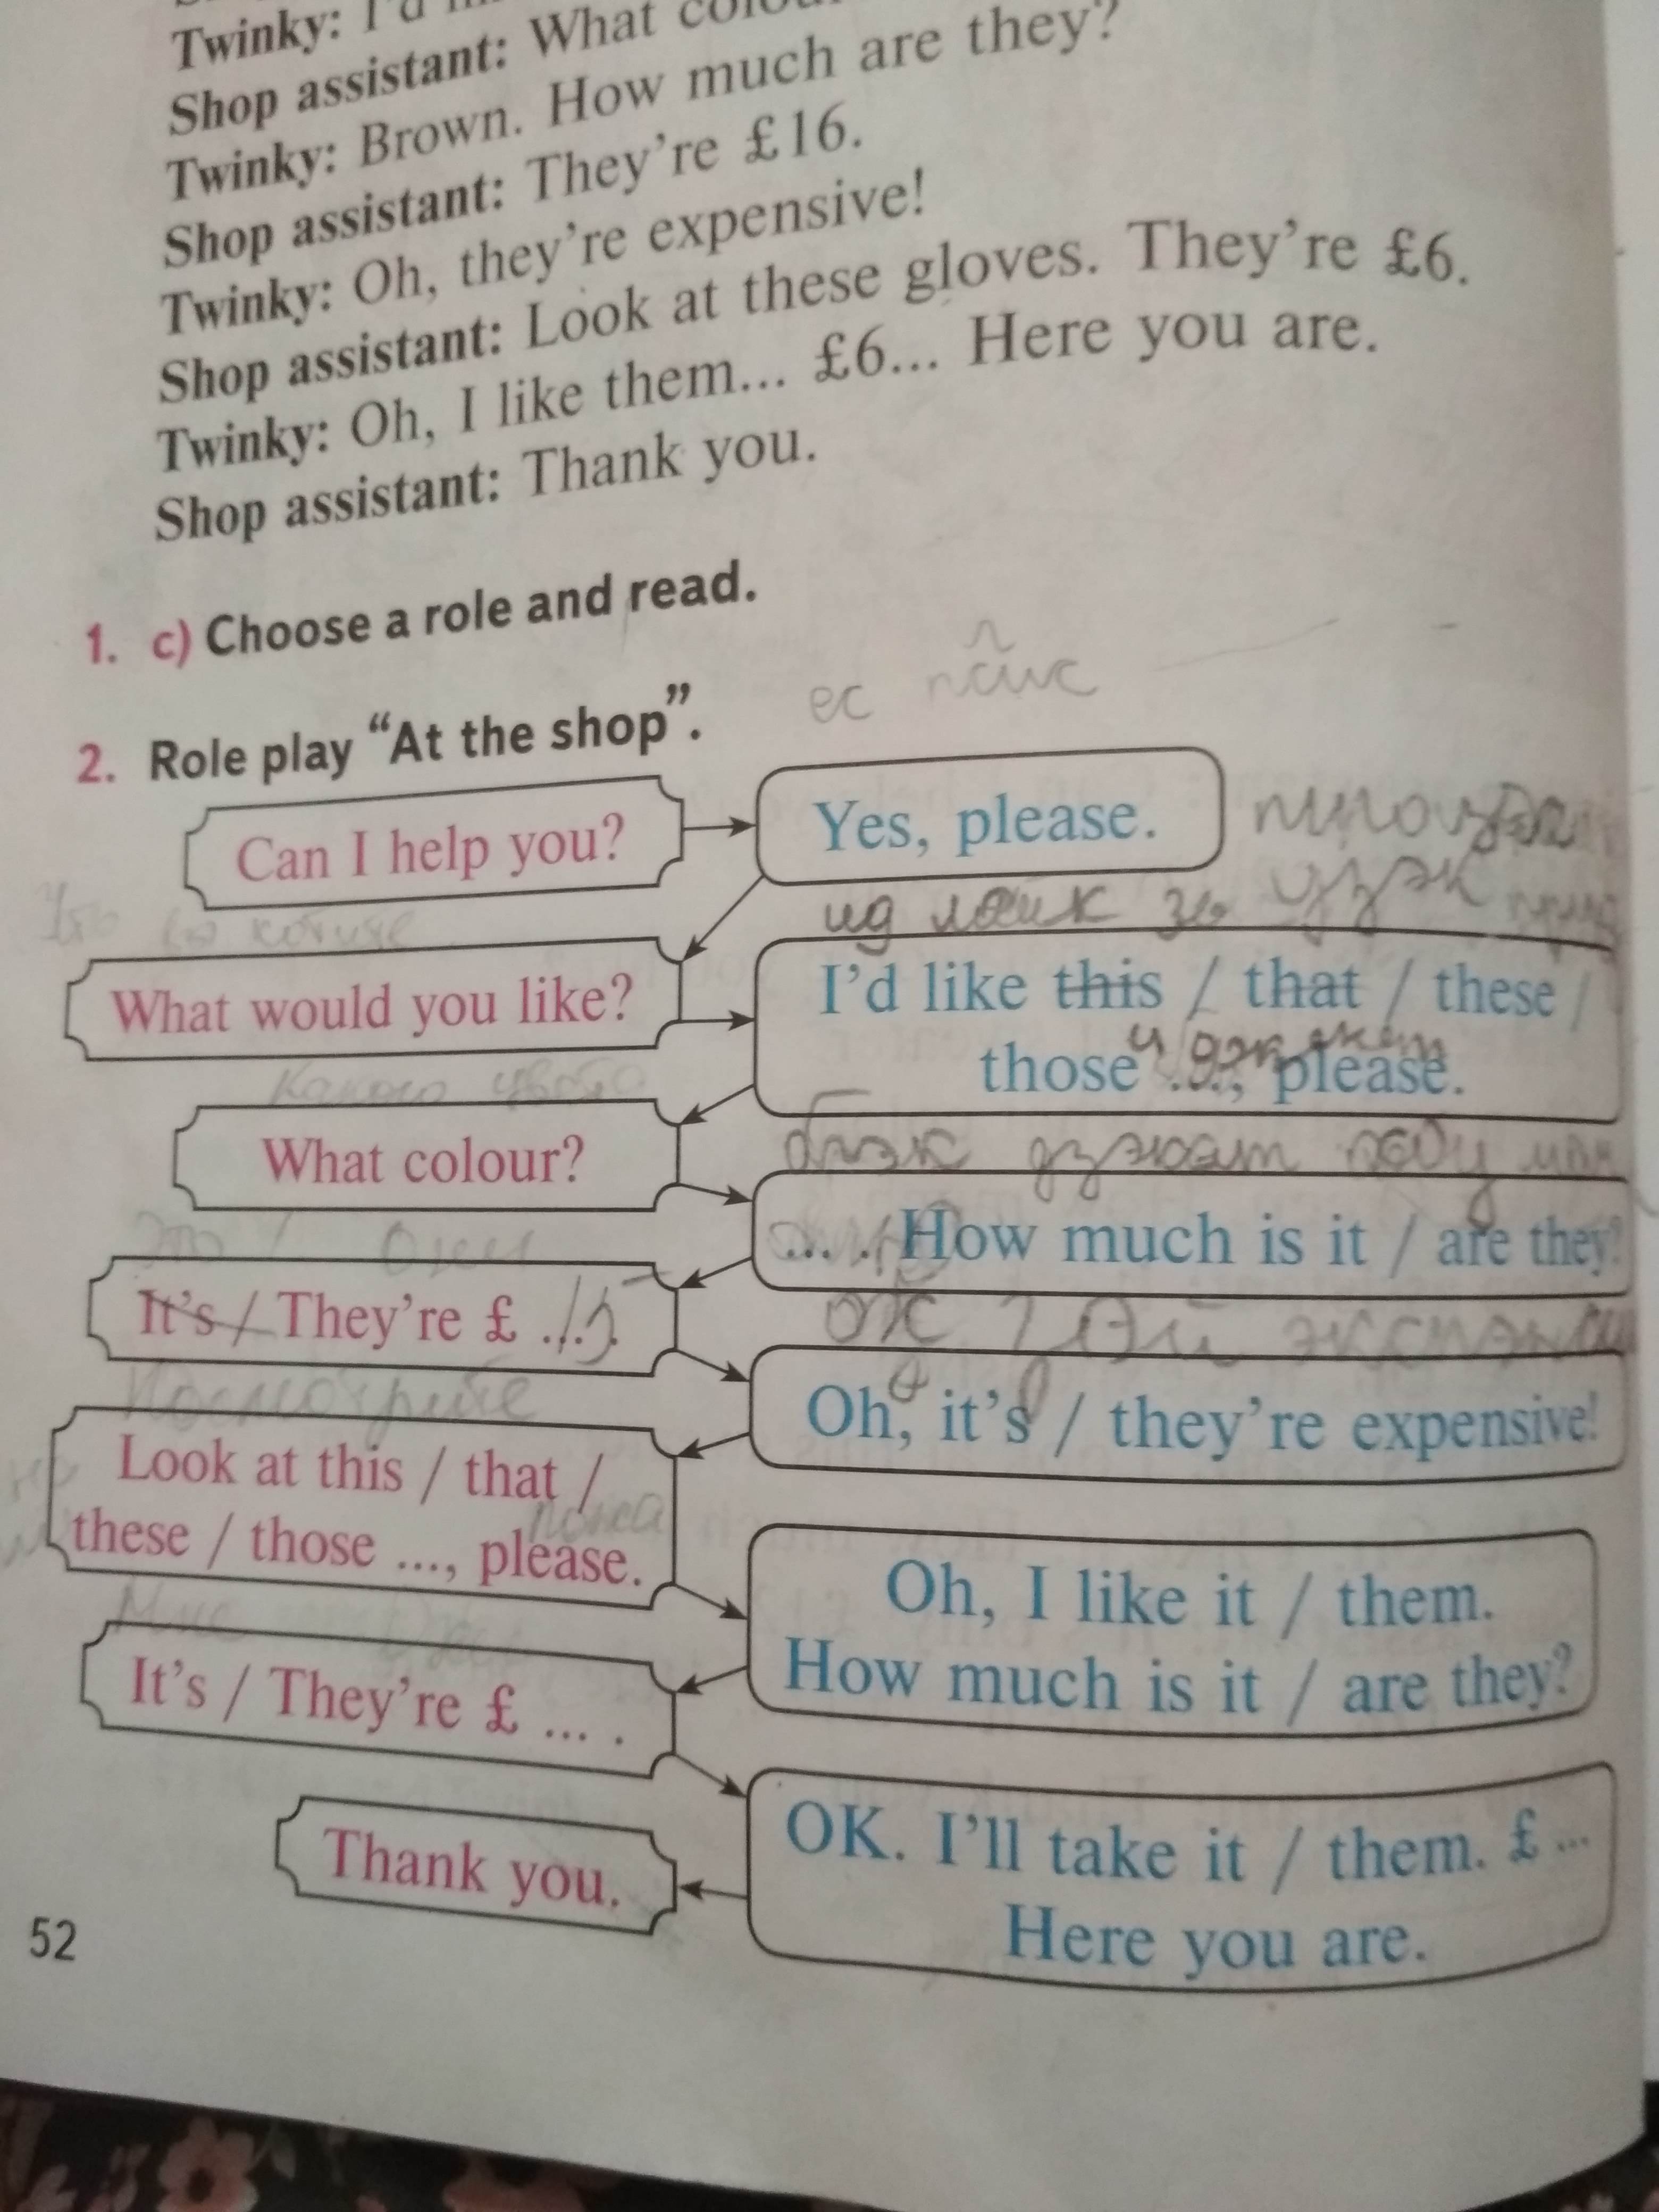 Twinky: I'd
Shop assistant: What
Twinky: Brown. How much are they?
Shop assistant: They're £16.
Twinky: Oh, they're expensive!
Shop assistant: Look at these gloves. They're £6.
Twinky: Oh, I like them... £6... Here you are.
Shop assistant: Thank you.
1. c) Choose a role and read.
ес
2. Role play “At the shop”.
Can I help you?
Yes, please.
ид лайк
What would you like?
I'd like this / that / these /
those ..., please.
Какого цвета
What colour?
... . How much is it / are they?
Это / Они
It's / They're £ ... .
Oh, it's / they're expensive!
Посмотрите
Look at this / that /
these / those ..., please.
Oh, I like it / them.
How much is it / are they?
It's / They're £ ... .
OK. I'll take it / them. £ ...
Here you are.
Thank you.
52